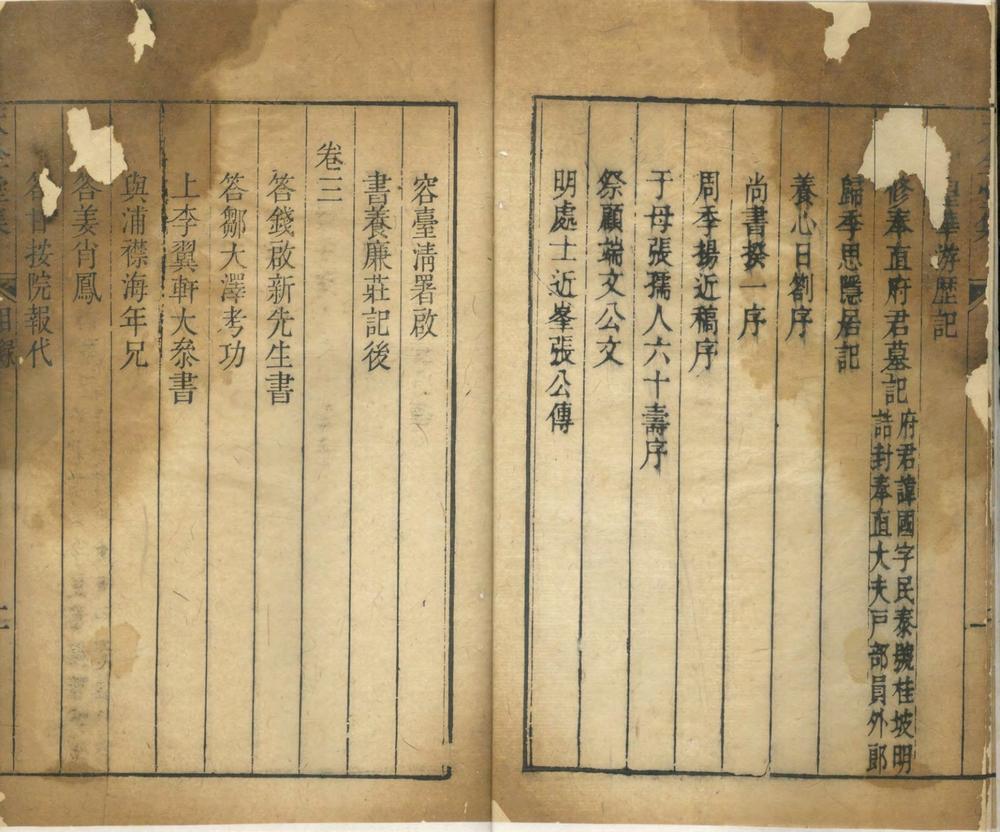 游歷記
修奉直府君墓記
府君諱國字民泰號桂坡明
誥封奉直大夫戶部員外郎
歸季思隱居記
養心日劄序
尚書揆一序
周季揚近稿序
于母張孺人六十壽序
祭顧端文公文
明處士近峯張公傳
容臺淸署啟
書養廉莊記後
卷三
答錢啟新先生書
答鄒大澤考功
上李翼軒大叅書
與浦襟海年兄
答姜肖鳳
答甘按院報代